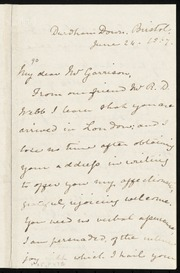 Durdham Down, Bristol,
June 24.
My dear Mr Garrison,
From our friend Mr R. D.
Webb I learn that you are
arrived in London; and I
lose no time after obtaining
your address in writing
to offer you my affectionate,
grateful, rejoicing welcome.
You need no verbal assurance
I am persuaded, of the
joy with which I hail your